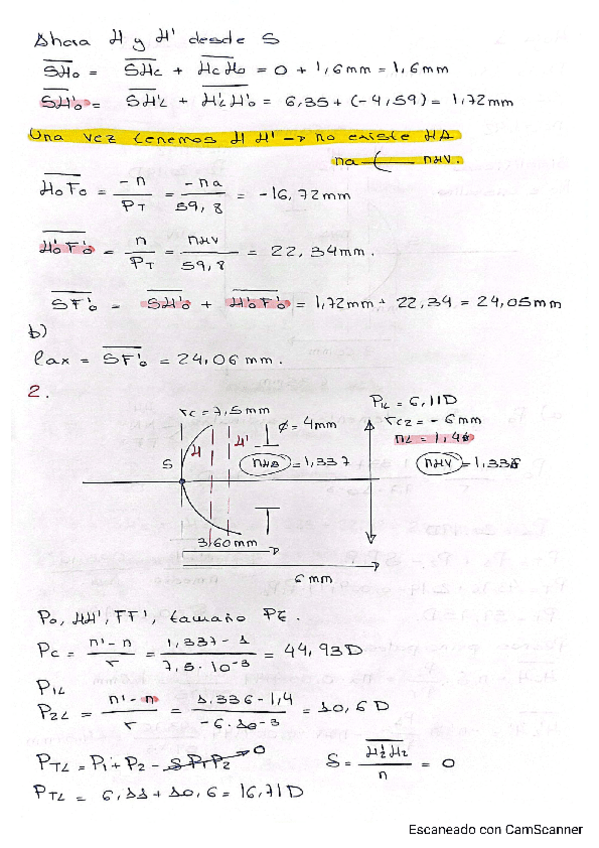 Ahora H y H' desde S
SHo = SHc + HcHo = 0 + 1,6mm = 1,6mm
SH'o = SH'L + H'LH'o = 6,35 + (-4,59) = 1,72mm
Una vez tenemos H H' → no existe HA
na ( nHV.
HoFo = -n / PT = -na / 59,8 = -16,72mm
H'oF'o = n / PT = nHV / 59,8 = 22,34mm.
SF'o = SH'o + H'oF'o = 1,72mm + 22,34 = 24,05mm
b)
lax = SF'o = 24,06 mm.
2.
rc = 7,5mm
P1L = 6,11D
ø = 4mm
rC2 = -6mm
nL = 1,4
H H'
S
nHA = 1,337
nHV = 1,336
3,60mm
6 mm
Po, HH', FF', tamaño PE.
Pc = n'-n / r = 1,337-1 / 7,5·10-3 = 44,93D
P1L
P2L = n'-n / r = 1.336-1,4 / -6·10-3 = 10,6D
PTL = P1 + P2 - δP1P2 → 0 δ = H'1H2 / n = 0
PTL = 6,11 + 10,6 = 16,71D
Escaneado con CamScanner